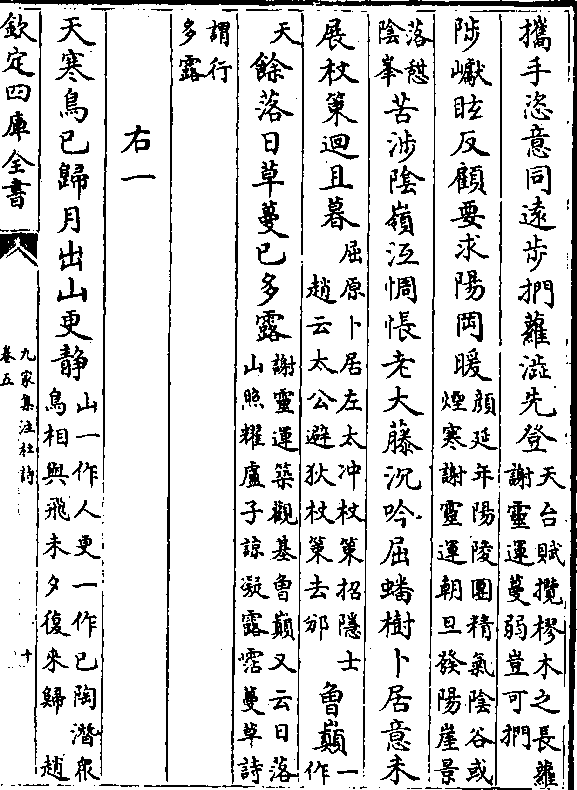 攜手恣意同遠步捫蘿澁先登天台賦攬樛木之長蘿謝靈運蔓弱豈可捫
陟巘眩反顧要求陽岡暖顔延年陽陵團精氣隂谷或煙寒謝靈運朝旦發陽崖景
落憇隂峯苦涉隂嶺沍惆悵老大藤沉吟屈蟠樹卜居意未
展杖策迴且暮屈原卜居左太冲杖策招隠士趙云太公避狄杖策去邠魯巔一作
天餘落日草蔓已多露謝靈運築觀基魯巔又云日落山照耀盧子諒凝露霑蔓草詩
謂行多露
右一
天寒鳥已歸月出山更静山一作人更一作已陶潛衆鳥相與飛未夕復来歸趙
欽定四庫全書
九家集注杜詩
卷五
十